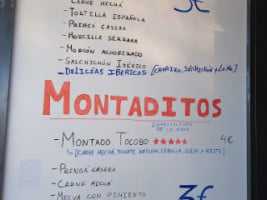 - CARNE MECHÁ
3€
- TORTILLA ESPAÑOLA
- PRINGÁ CASERA
- MORCILLA SERRANA
- MORCÓN ACHORIZADO
- SALCHICHÓN IBÉRICO
- DELICIAS IBERICAS [CHORIZO, SALCHICHÓN Y LOMO]
MONTADITOS
ESPECIALIDAD
DE LA CASA
- MONTADO TOCOBO ★★★★★ 4€
↳ [CARNE MECHÁ, TOMATE NATURAL, CEBOLLA, QUESO Y
- PRINGÁ CASERA
- CARNE MECHÁ
- MELVA CON PIMIENTO
3€